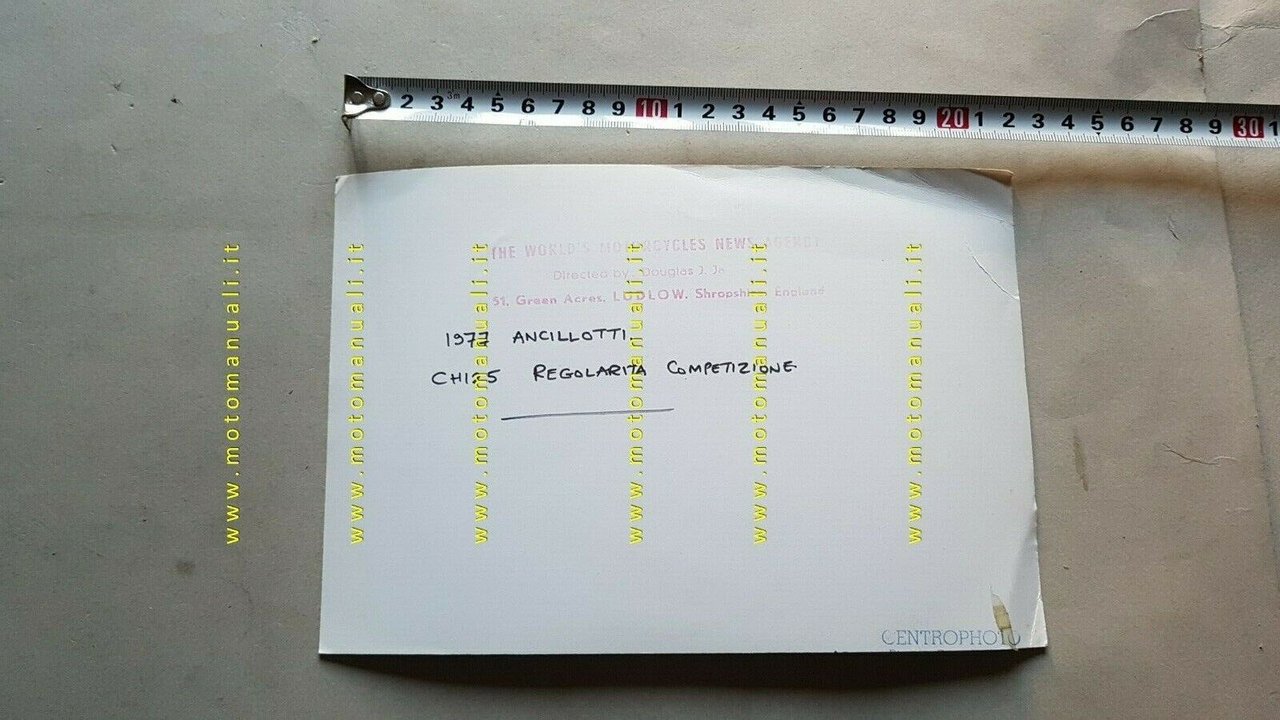 2 3 3m 4 5 6 7 8 9 10 1 2 3 4 5 6 7 8 9 20 1 2 3 4 5 6 7 8 9 30 1
THE WORLD'S MOTORCYCLES NEWS AGENCY
Directed by Douglas J.
51, Green Acres, LUDLOW, Shropshire England
1977 ANCILLOTTI
CH125 REGOLARITA COMPETIZIONE
CENTROPHOTO
www.motomanuali.it
www.motomanuali.it
www.motomanuali.it
www.motomanuali.it
www.motomanuali.it
www.motomanuali.it